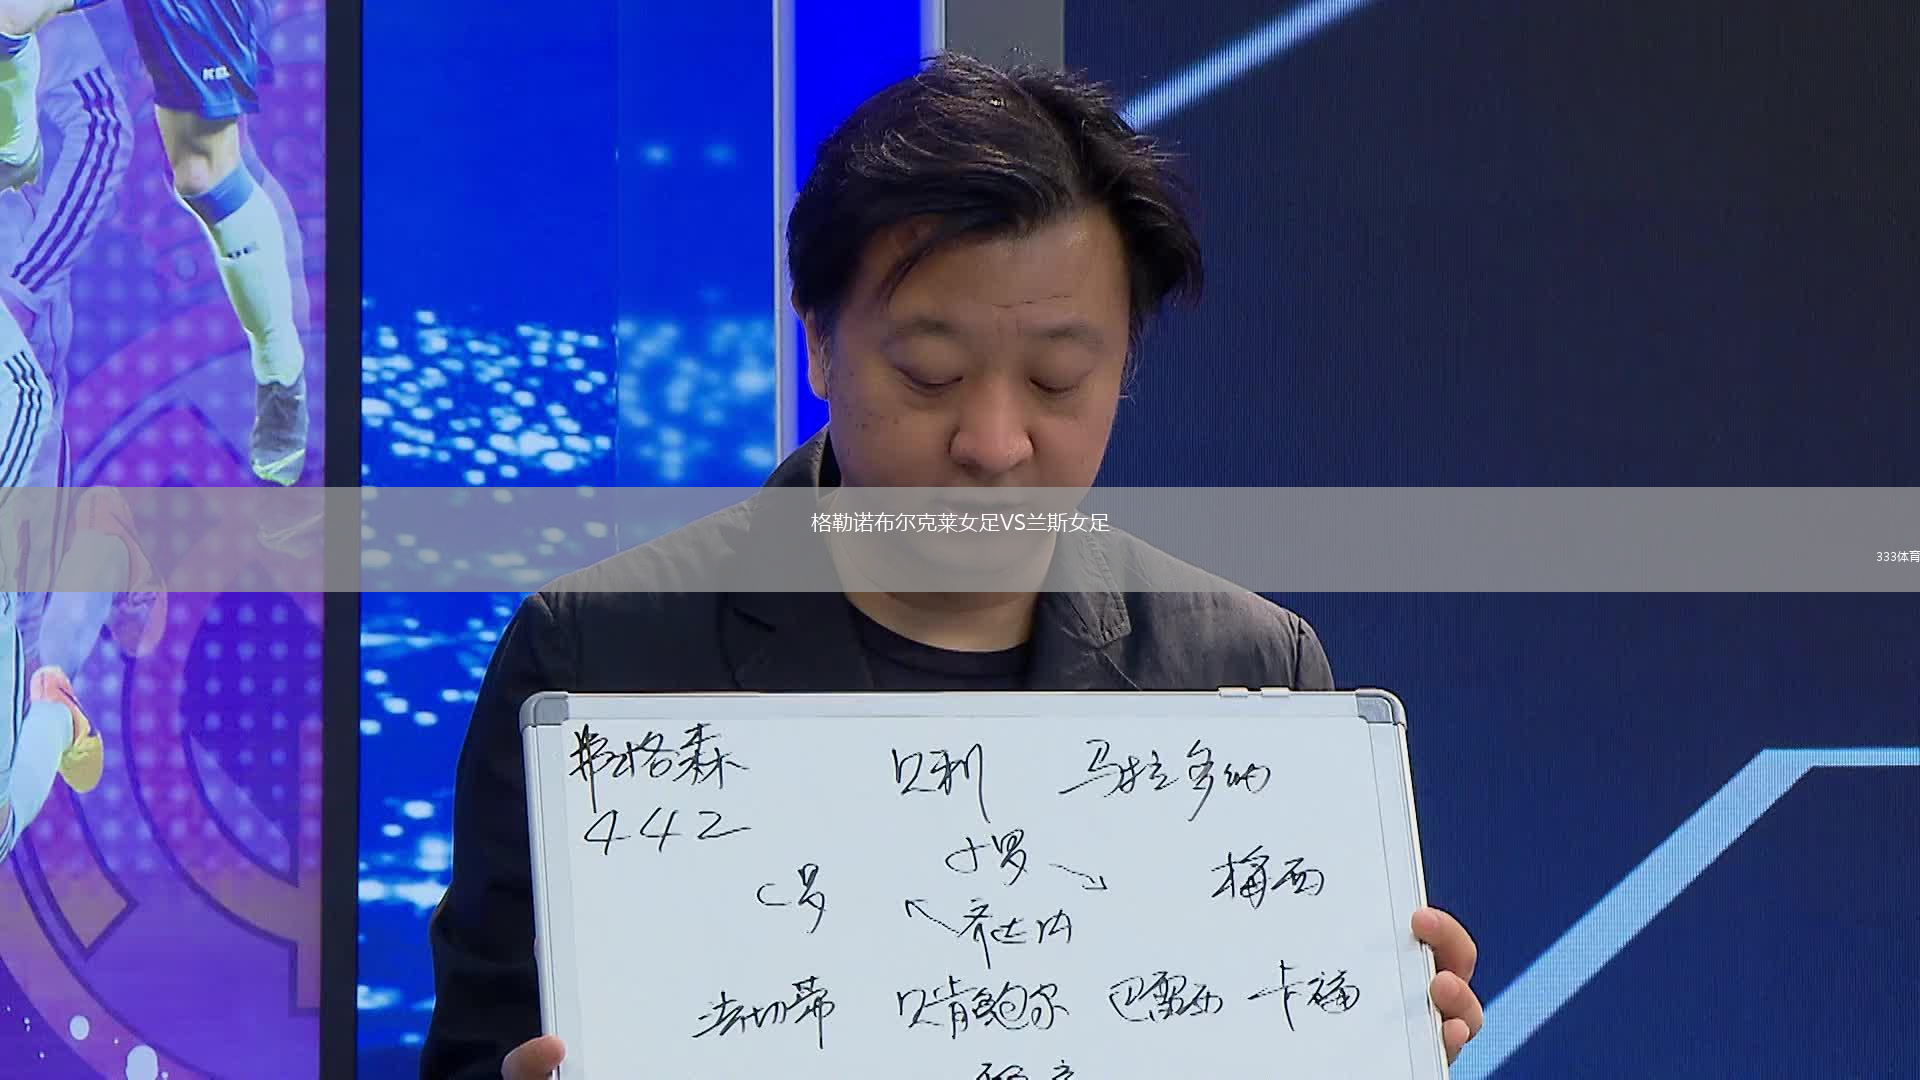 KEL
格勒诺布尔克莱女足VS兰斯女足
333体育
弗格森 贝利 马拉多纳
442
小罗
C罗 梅西
齐达内
法切蒂 贝肯鲍尔 巴雷西 卡福